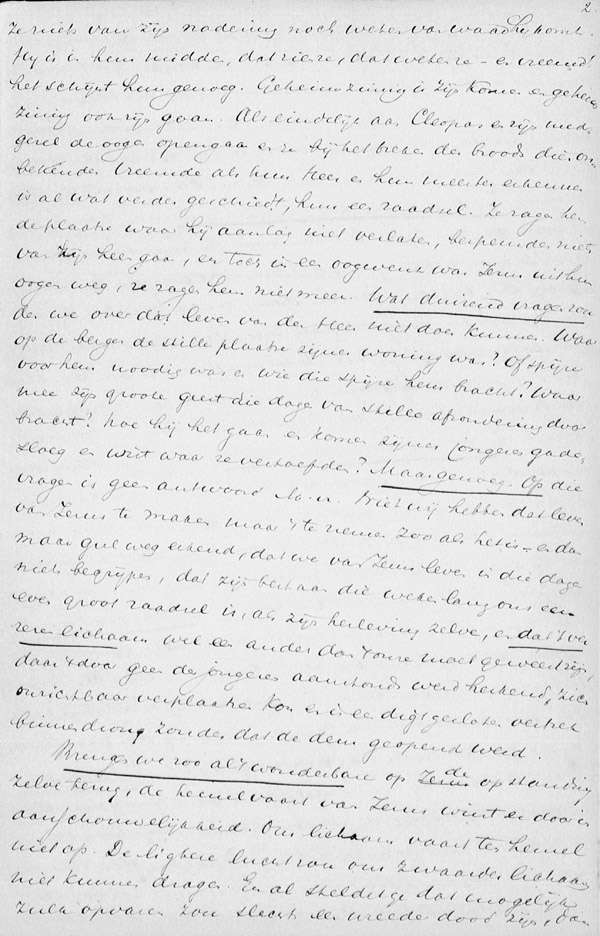 2.
ze niets van zijn nadering noch weten van waar Hij komt.
Hij is in hun midden, dat zien ze, dat weten ze – en vreemd!
het schijnt hun genoeg. Geheimzinnig is zijn komen en geheim-
zinnig ook zijn gaan. Als eindelijk aan Cleopas en zijn med-
gezel de oogen opengaan en ze bij het breken des broods die on-
bekenden vreemde als hun Heer en hun meester erkennen
is al wat verder geschiedt, hun een raadsel. Ze zagen hem
de plaats waar hij aanlag niet verlaten, bespeurden niets
van zijn heengaan, en toch in een oogwenk was Jezus uit hun
oogen weg, ze zagen hem niet meer. Wat duizend vragen zou-
den we over dat leven van den Heer niet doen kunnen. Waar
op de bergen de stille plaatse zijner woning was? Of spijze
voor hem noodig was en wie die spijze hem bracht? Waar
mee zijn groote geest die dagen van stille afzondering door
bracht? hoe hij het gaan en komen zijner jongeren gade
sloeg en wist waar ze vertoefden? Maar genoeg. Op die
vragen is geen antwoord M. H. Niet wij hebben dat leven
van Jezus te maken maar 't te nemen zoo als het is – en dan
maar gul weg erkend, dat we van Jezus leven in die dagen
niets begrijpen, dat zijn bestaan die weken lang ons een
even groot raadsel is, als zijn herleving zelve, en dat 't ver
rezen lichaam wel een ander dan 't onze moet geweest zijn,
daar 't door geen der jongeren aanstonds werd herkend, zich
onzichtbaar verplaatsen kon en in een digtgesloten vertrek
binnendrong zonder dat de deur geopend werd.
Brengen we zoo al 't wonderbare op de opstanding
zelve terug, de hemelvaart van Jezus wint er door in
aanschouwelijkheid. Ons lichaam vaart ten hemel
niet op. De lichtere lucht zou ons zwaarder lichaam
niet kunnen dragen. En al steldet ge dat mogelijk
zulk opvaren zou slechts een wreede dood zijn, van